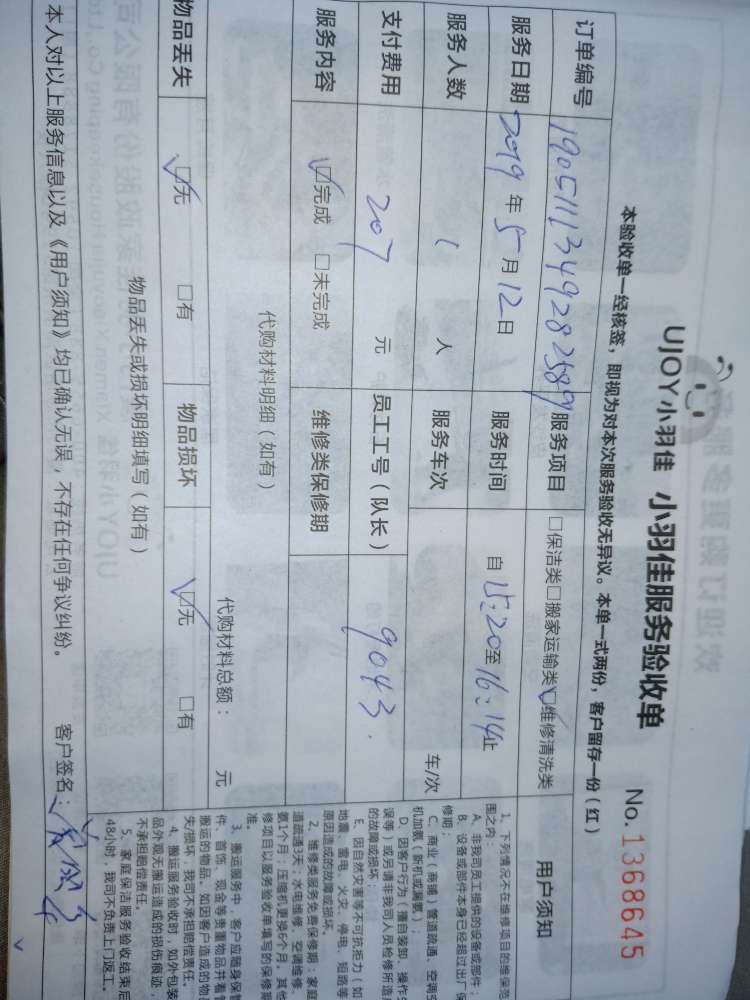 UJOY小羽佳 小羽佳服务验收单 No.13686645
本验收单一经核签，即视为对本次服务验收无异议。本单一式两份，客户留存一份（红）
订单编号 190511134928 2589 服务项目 □保洁类□搬家运输类☑维修清洗类
服务日期 2019年5月12日 服务时间 自15:20至16:14止
服务人数 1 人 服务车次 车/次
支付费用 207 元 员工工号（队长） 9043.
服务内容 ☑完成 □未完成 维修类保修期
代购材料明细（如有） 代购材料总额： 元
物品丢失 ☑无 □有 物品损坏 ☑无 □有
物品丢失或损坏明细填写（如有）
本人对以上服务信息以及《用户须知》均已确认无误，不存在任何争议纠纷。 客户签名：
用户须知
1、下列情况不在维修项目的维保范
围之内：
A、非我司员工提供的设备或部件；
B、设备或部件本身已经超过出厂保
修期；
C、商业（商铺）管道疏通、空调空
机加氨（新机或漏氨）；
D、因客户行为（擅自装卸、操作失
误等）或另请非我司人员检修所造
的故障或损坏；
E、因自然灾害等不可抗拒力（如
地震、雷电、火灾、停电、短路等
原因造成的故障或损坏。
2、维修类服务免费保修期：家庭
道疏通3天；水电维修、空调维修、
氨1个月；压缩机更换6个月，其他
修项目以服务验收单填写的保修期
准。
3、搬运服务中，客户应随身保管
件、首饰、现金等贵重物品并看管
搬运的物品。如因客户造成的物品
失/损坏，我司不承担赔偿责任。
4、搬运服务验收时，如外包装
品外观无搬运造成的损伤痕迹，
不承担赔偿责任。
5、家庭保洁服务验收结束后
48小时，我司不负责上门返工。